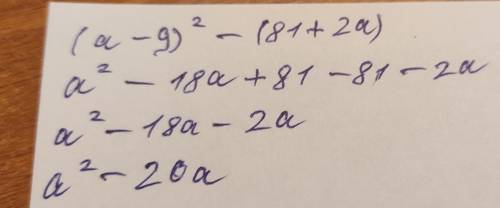 (a - 9)² - (81 + 2a)
a² - 18a + 81 - 81 - 2a
a² - 18a - 2a
a² - 20a